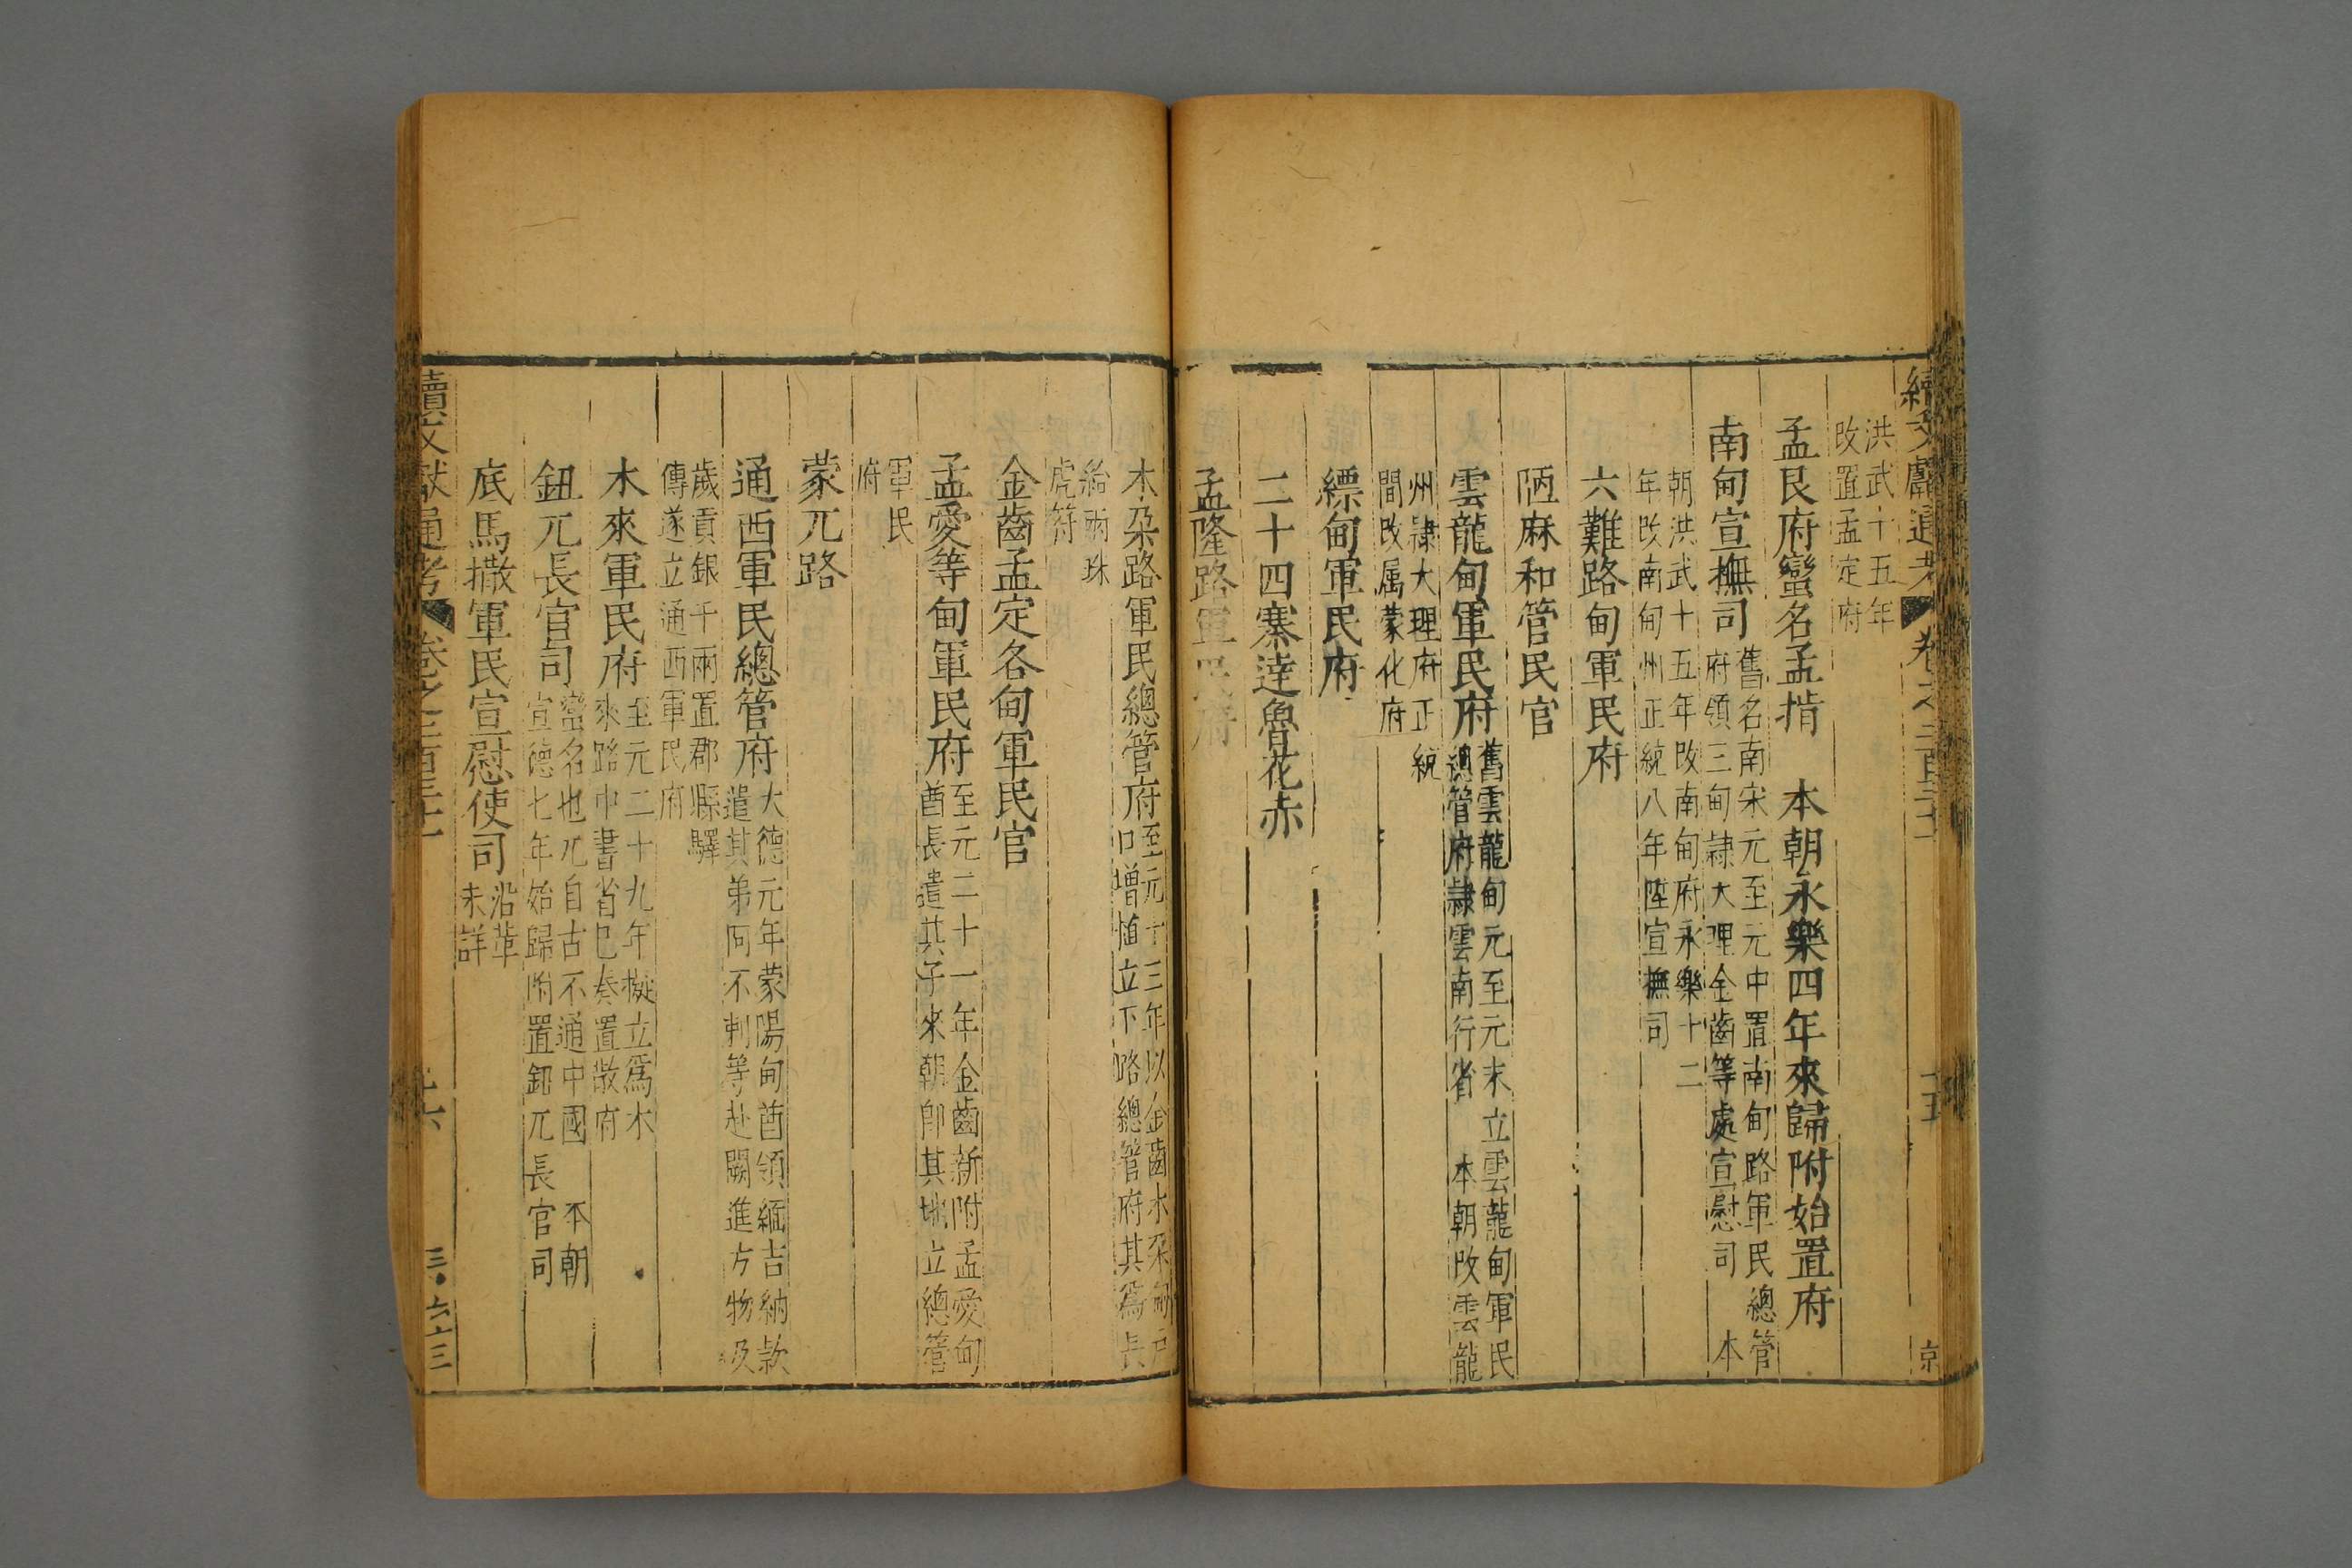 續文獻通考 卷之二百三十二 十五 京
洪武十五年
改置孟定府
孟艮府蠻名孟掯 本朝永樂四年來歸附始置府
南甸宣撫司舊名南宋元至元中置南甸路軍民總管
府領三甸隷大理金齒等處宣慰司 本
朝洪武十五年改南甸府永樂十二
年改南甸州正統八年陞宣撫司
六難路甸軍民府
陋麻和管民官
雲龍甸軍民府舊雲龍甸元至元末立雲龍甸軍民
總管府隷雲南行省 本朝改雲龍
州隷大理府正統
間改属蒙化府
縹甸軍民府
二十四寨達魯花赤
孟隆路軍民府
木朶路軍民總管府至元十三年以金齒木朶甸戶
口增植立下路總管府其爲長
給兩珠
虎符
金齒孟定各甸軍民官
孟愛等甸軍民府至元二十一年金齒新附孟愛甸
酋長遣其子來朝卽其地立總管
軍民
府
蒙兀路
通西軍民總管府大德元年蒙陽甸酋領緬吉納款
遣其弟阿不剌等赴闕進方物及
歲貢銀千兩置郡縣驛
傳遂立通西軍民府
木來軍民府至元二十九年擬立爲木
來路中書省巳奏置散府
鈕兀長官司蠻名也兀自古不通中國 本朝
宣德七年始歸附置鈕兀長官司
底馬撒軍民宣慰使司沿革
未詳
續文獻通考 卷之二百三十二 十六 三六十三